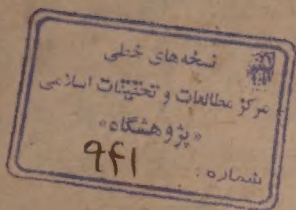 نسخه های خطی
مرکز مطالعات و تحقیقات اسلامی
«پژوهشگاه»
شماره: ۹۴۱